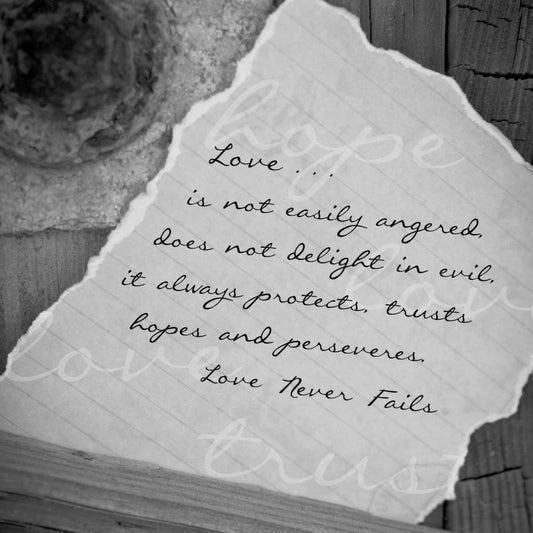 hope
Love . . .
is not easily angered,
does not delight in evil,
love
it always protects, trusts
hopes and perseveres,
love
Love Never Fails
trust